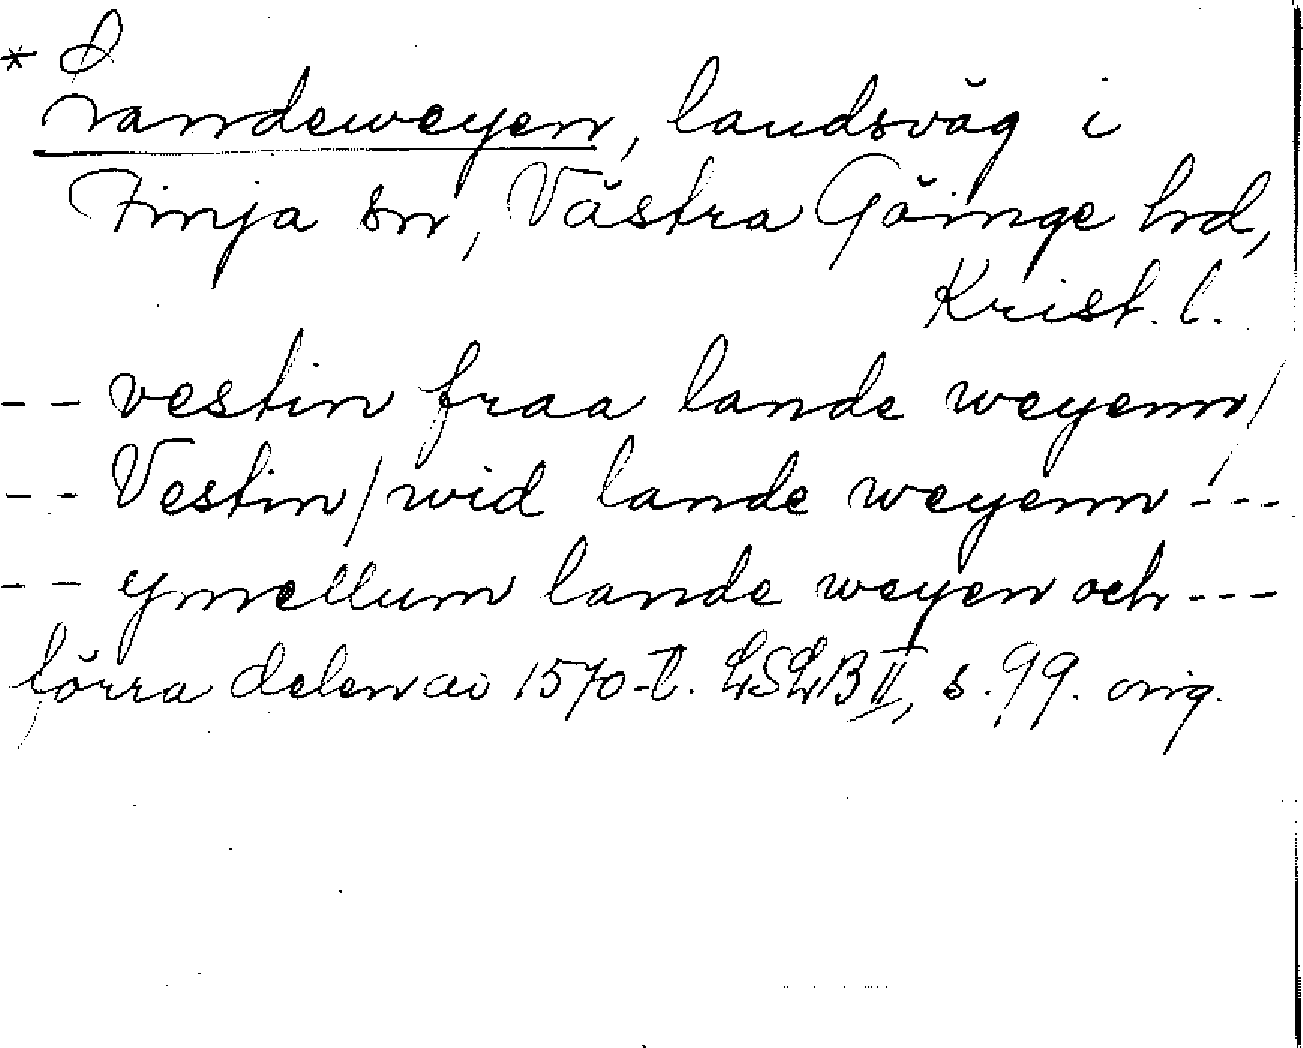 * Landeweyen, landsväg i
Finja sn, Västra Göinge hd,
Krist. l.
-- vestin fraa lande weyenn/
-- Vestin/wid lande weyenn ---
-- ymellum lande weyen och ---
förra delen av 1570-t. LSLB II, s. 99. orig.